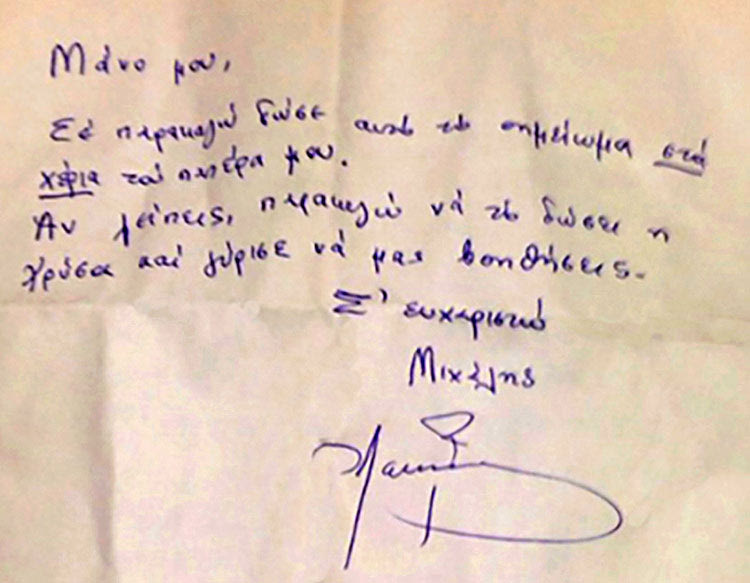 Μάνο μου,
Σέ παρακαλώ δώσε αυτό τό σημείωμα στά
χέρια τού πατέρα μου.
Άν λείπεις, παρακαλώ νά τό δώσει η
Χρύσα καί γύρισε νά μας βοηθήσεις.
Σ' ευχαριστώ
Μιχάλης